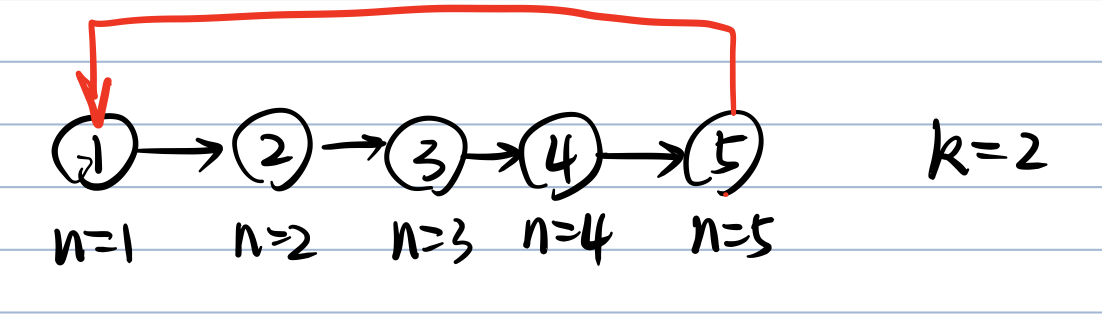 1 2 3 4 5 k=2
n=1 n=2 n=3 n=4 n=5